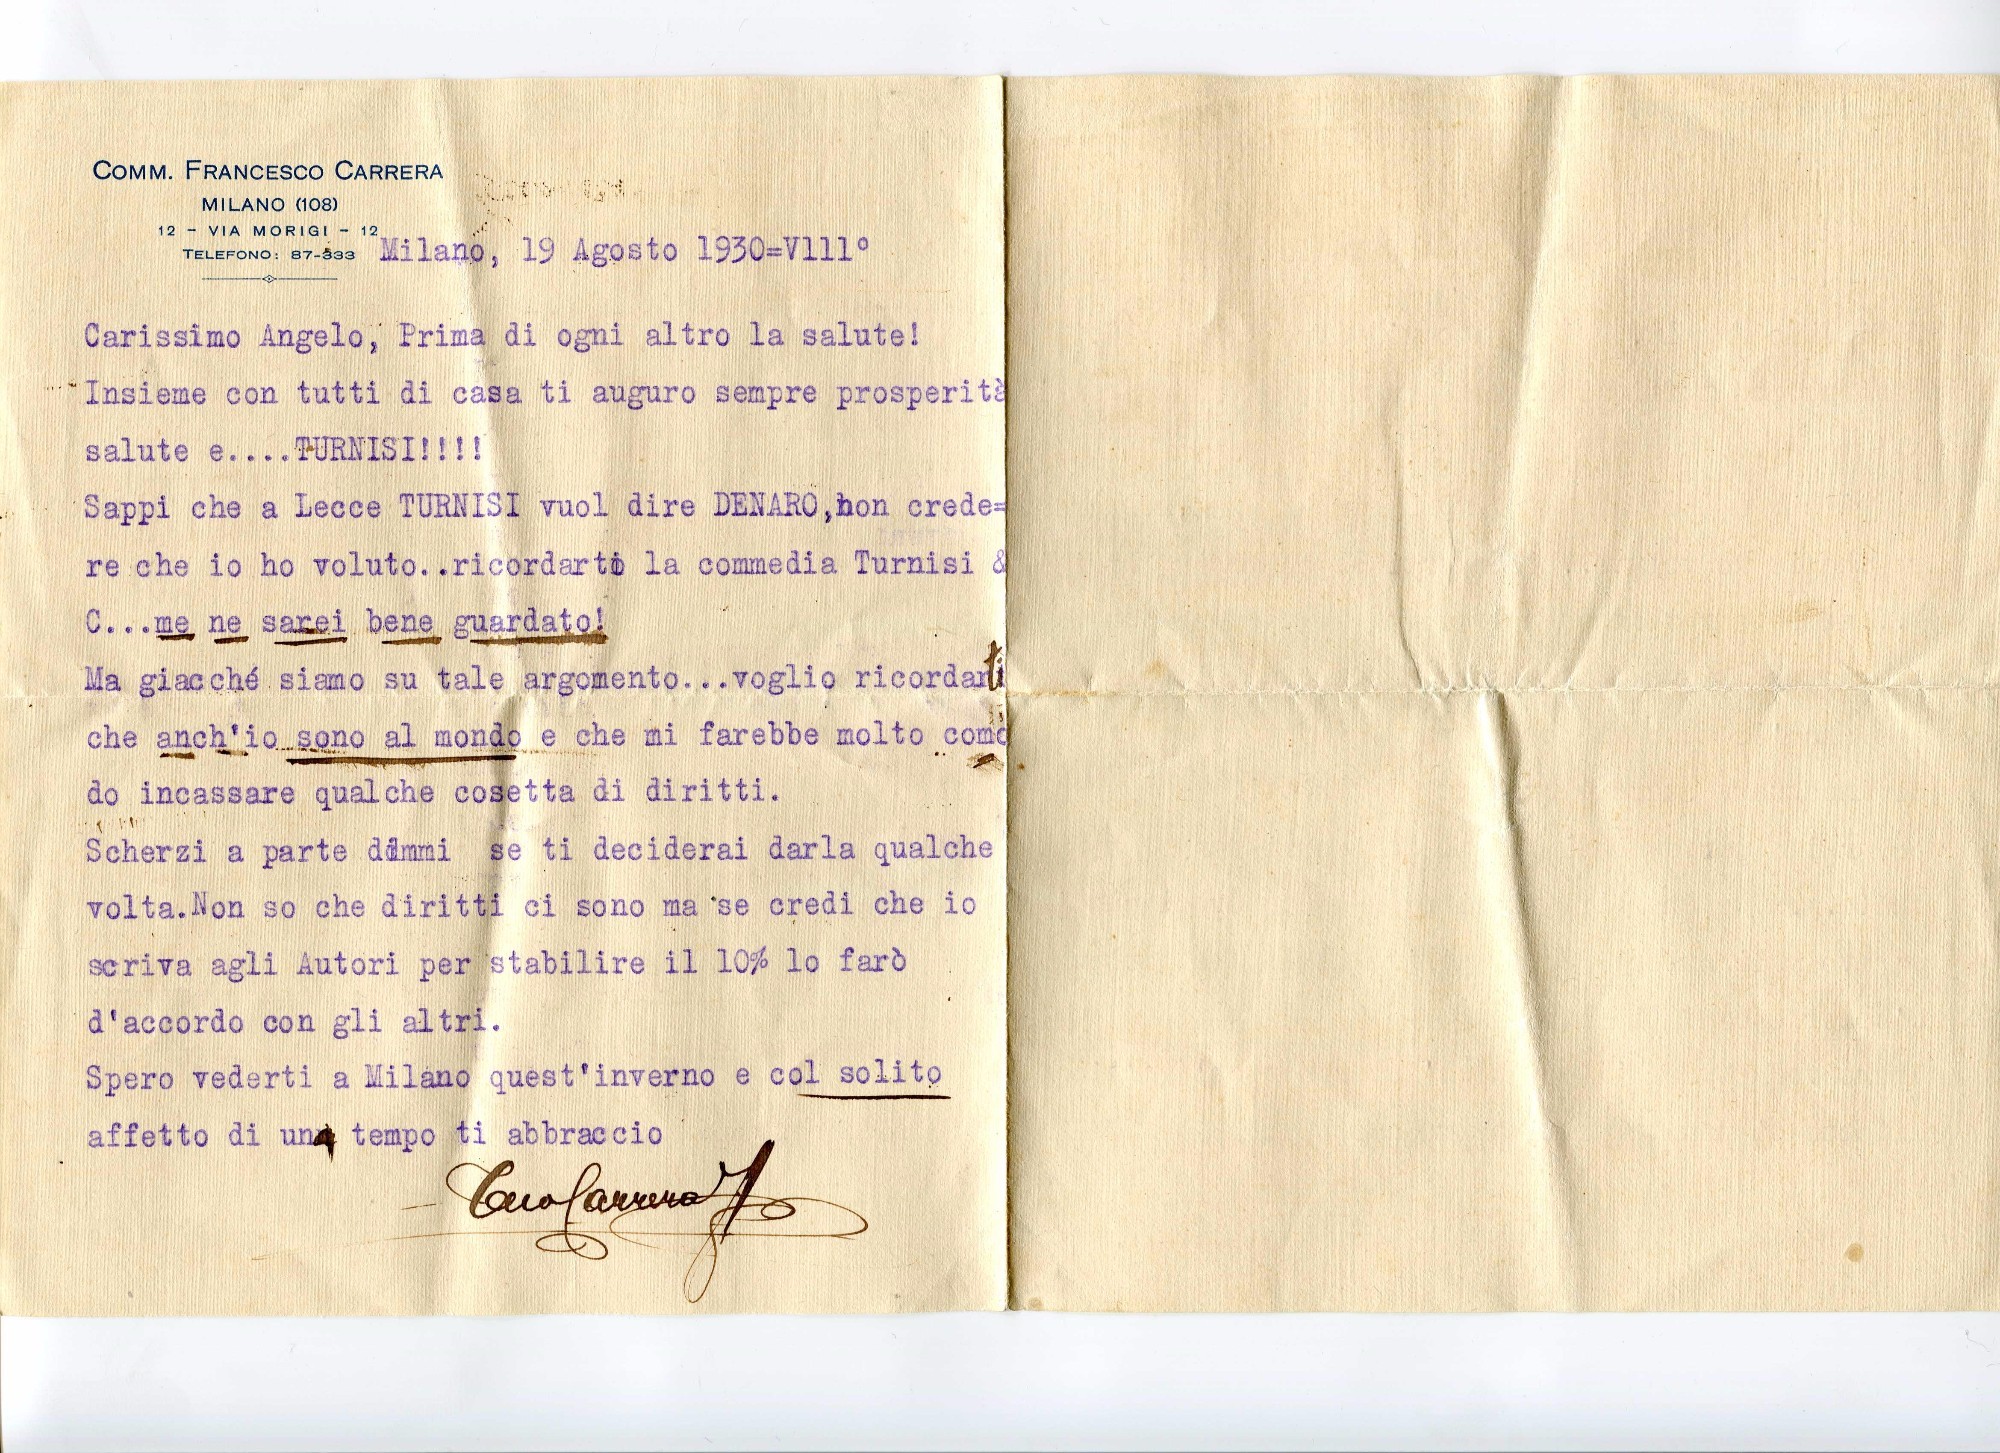 COMM. FRANCESCO CARRERA
MILANO (108)
12 - VIA MORIGI - 12
TELEFONO: 87-333
Milano, 19 Agosto 1930=V111°
Carissimo Angelo, Prima di ogni altro la salute!
Insieme con tutti di casa ti auguro sempre prosperità
salute e....TURNISI!!!!
Sappi che a Lecce TURNISI vuol dire DENARO,non crede=
re che io ho voluto..ricordarti la commedia Turnisi &
C...me ne sarei bene guardato!
Ma giacché siamo su tale argomento...voglio ricordarti
che anch'io sono al mondo e che mi farebbe molto como
do incassare qualche cosetta di diritti.
Scherzi a parte dimmi se ti deciderai darla qualche
volta.Non so che diritti ci sono ma se credi che io
scriva agli Autori per stabilire il 10% lo farò
d'accordo con gli altri.
Spero vederti a Milano quest'inverno e col solito
affetto di un tempo ti abbraccio
Carrera